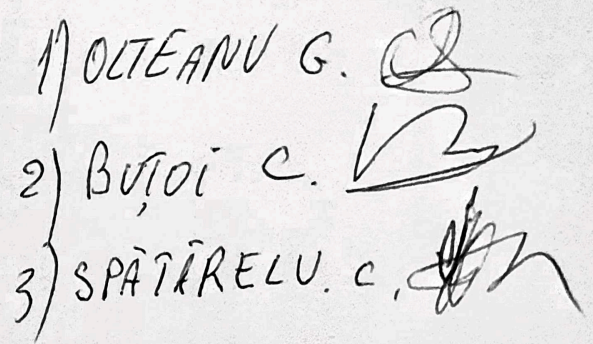 1) OLTEANU G.
2) BUȚOI C.
3) SPĂTĂRELU. C.